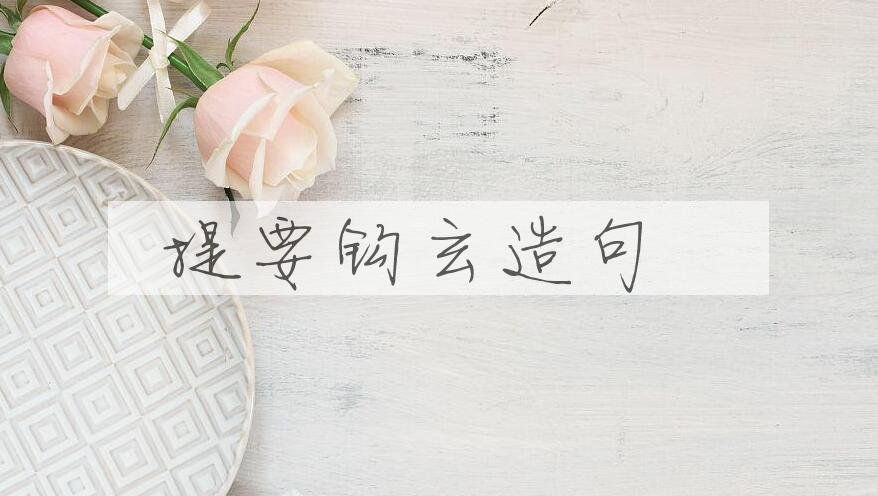 提要钩玄造句